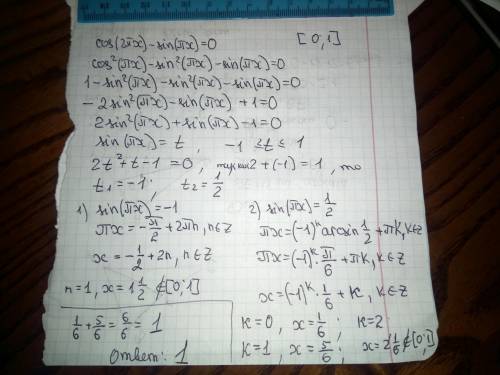 cos(2πx)-sin(πx)=0 [0;1]
cos²(πx)-sin²(πx)-sin(πx)=0
1-sin²(πx)-sin²(πx)-sin(πx)=0
-2sin²(πx)-sin(πx)+1=0
2sin²(πx)+sin(πx)-1=0
sin(πx)=t, -1≤t≤1
2t²+t-1=0, 2+(-1)=1, то
t₁=-1, t₂=1/2
1) sin(πx)=-1
πx=-π/2+2πn, n∈Z
x=-1/2+2n, n∈Z
n=1, x=1 1/2 ∉[0;1]
1/6+5/6=6/6=1
Ответ: 1
2) sin(πx)=1/2
πx=(-1)ᵏ arcsin 1/2+πk, k∈Z
πx=(-1)ᵏ·π/6+πk, k∈Z
x=(-1)ᵏ·1/6+k, k∈Z
k=0, x=1/6; k=2
k=1, x=5/6; x=2 1/6∉[0;1]